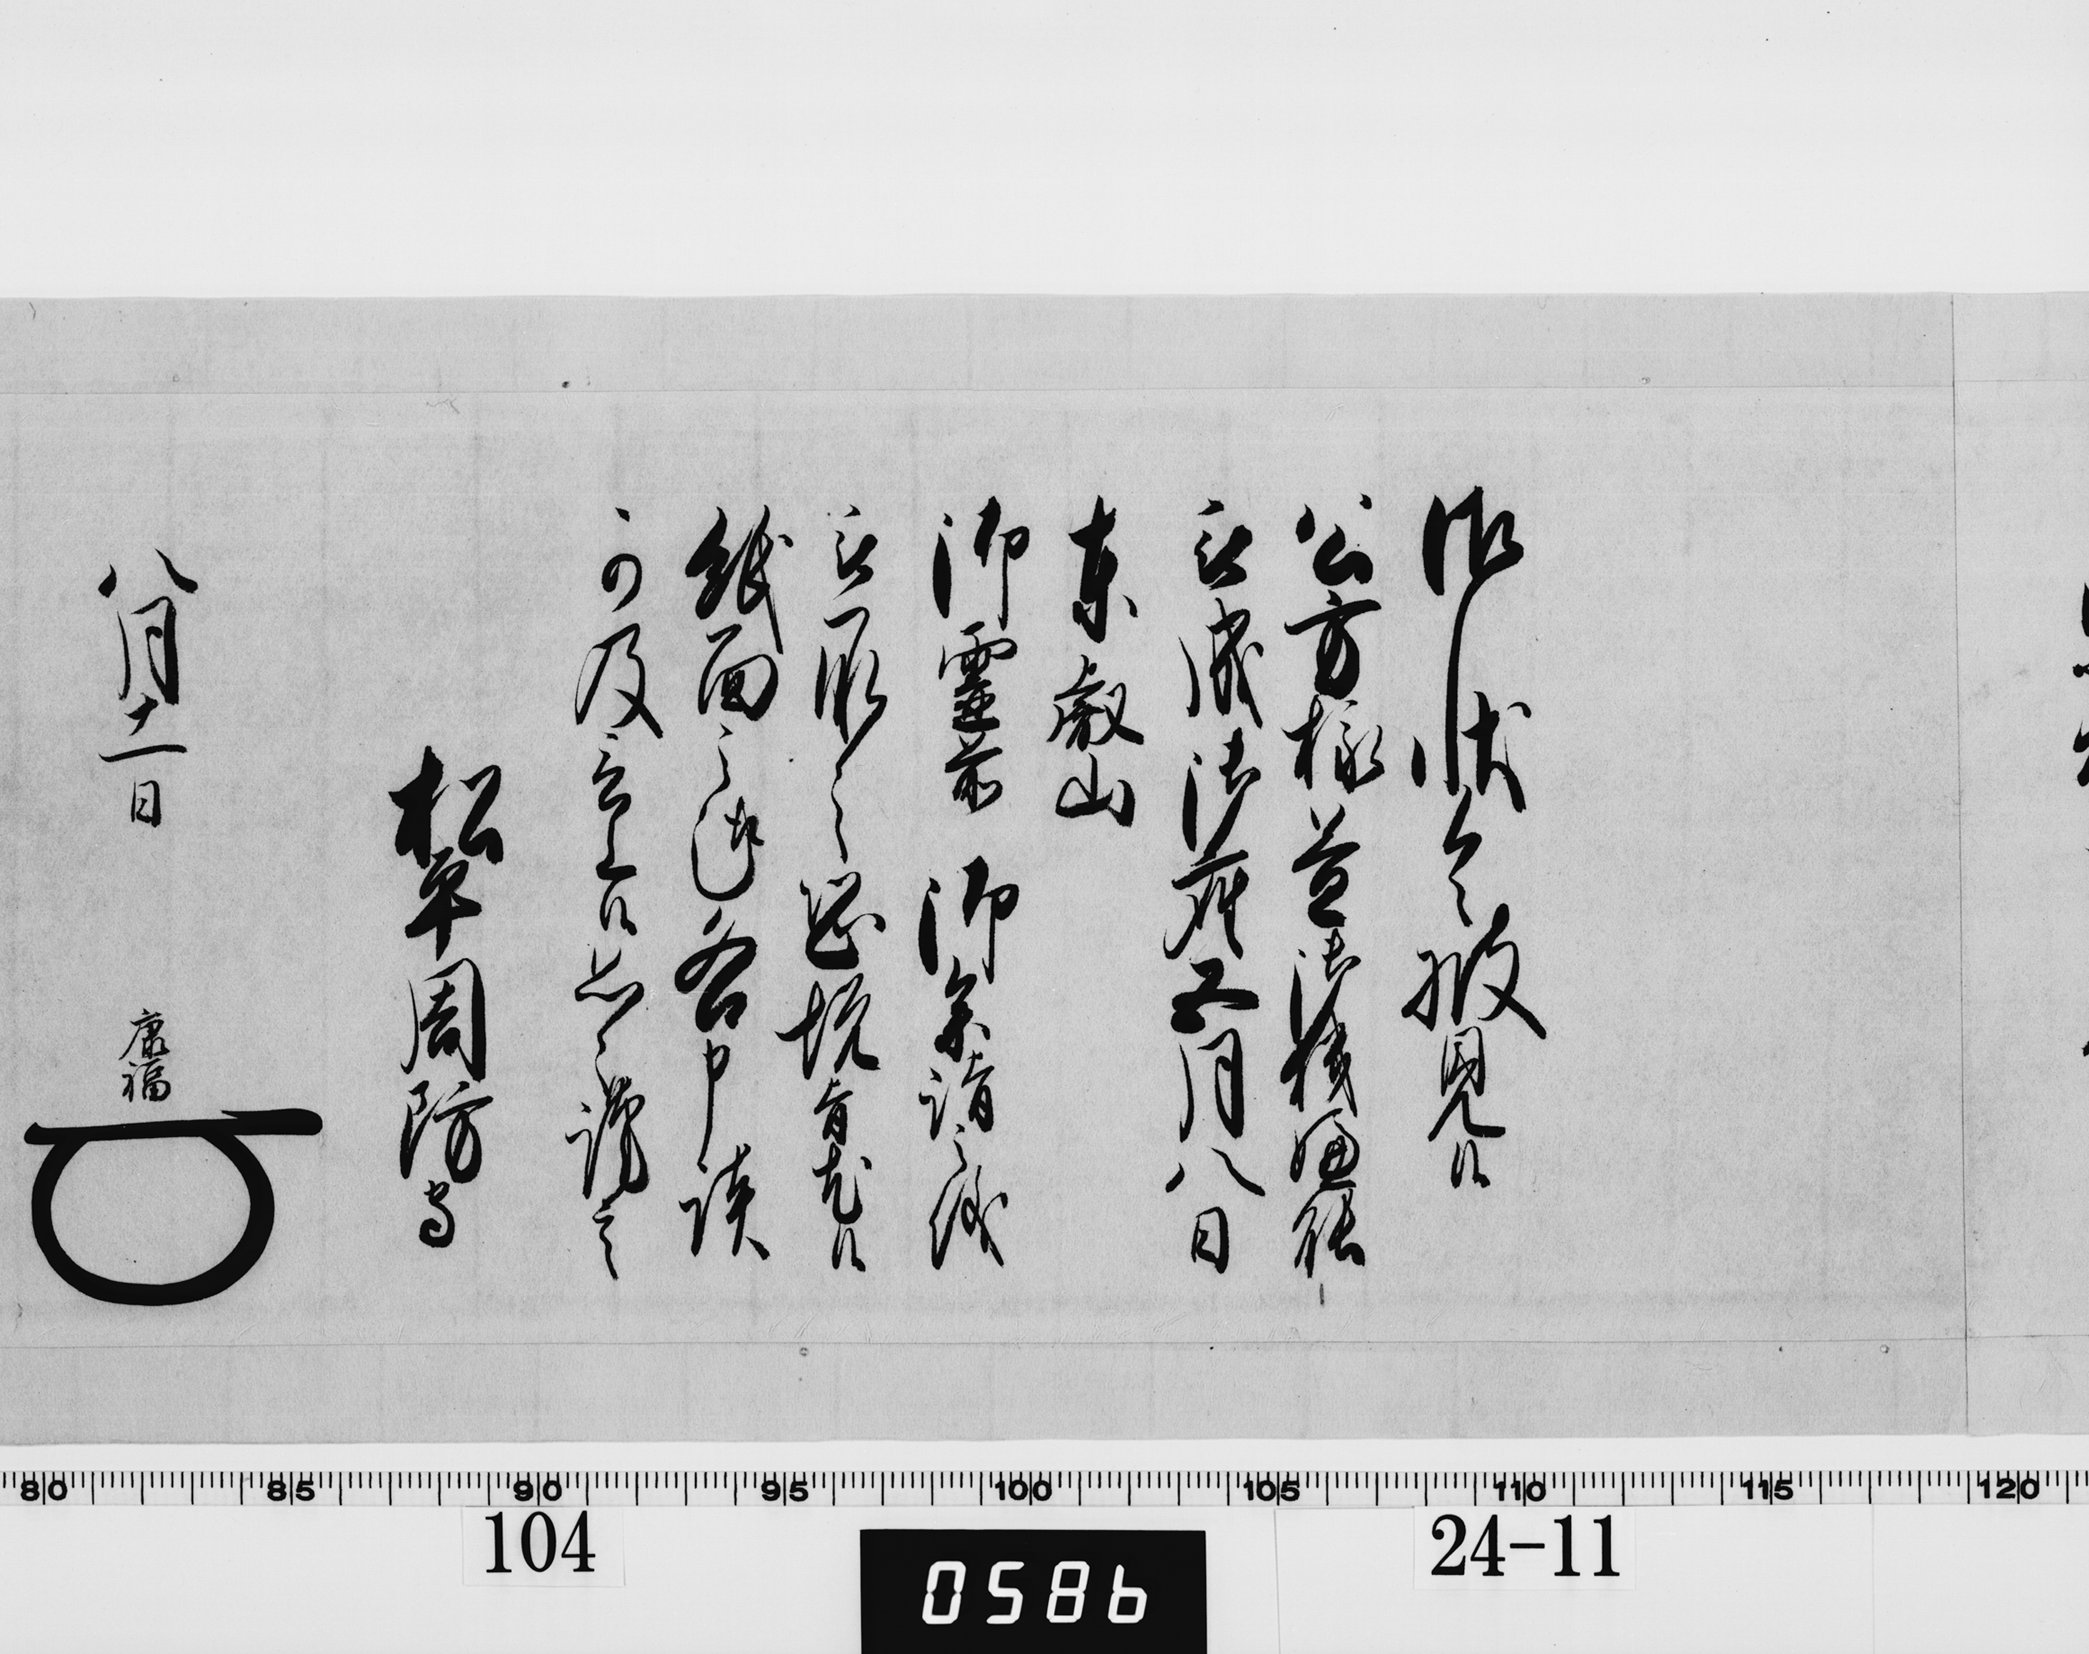 御状令披見候
公方様益御機嫌能
被成御座去月八日
東叡山
御霊前 御参詣之儀
被承之恐悦旨尤候
紙面之趣各申談
可及言上候恐々謹言
松平周防守
八月十一日 康福
80 85 90 95 100 105 110 115 120
104
0586
24-11